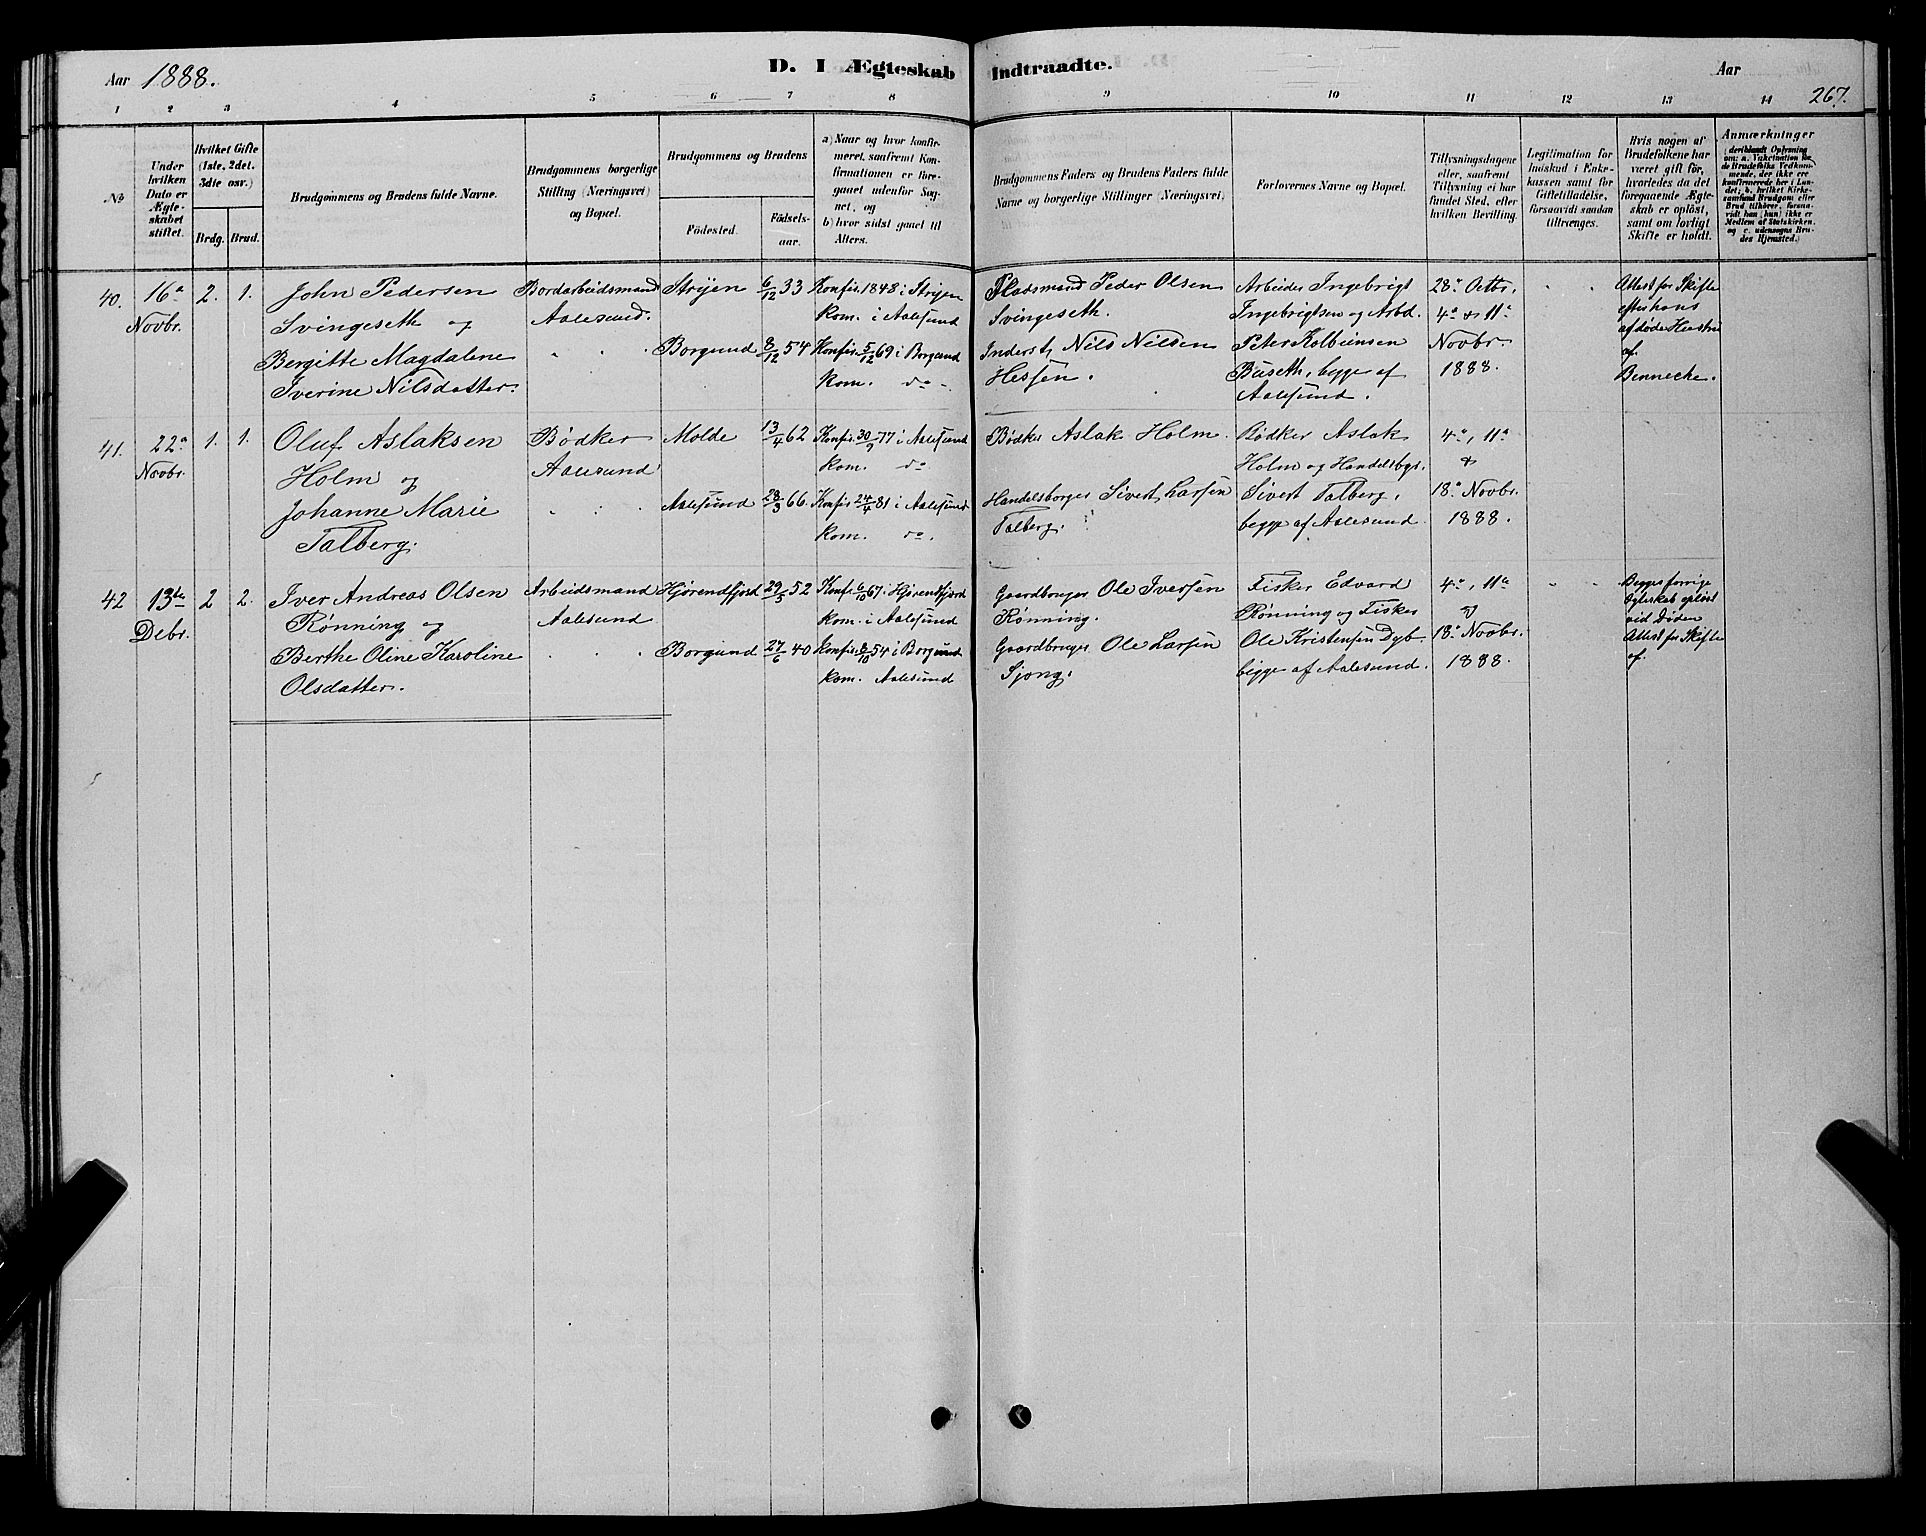 Aar 1888.
D. I Ægteskab Indtraadte.
Aar
267.
1 2 3 4 5 6 7 8 9 10 11 12 13 14
No
Under hvilken Dato er Ægteskabet stiftet.
Hvilket Gifte (1ste, 2det, 3die osv.)
Brdg. Brud.
Brudgommens og Brudens fulde Navne.
Brudgommens borgerlige Stilling (Næringsvei) og Bopæl.
Brudgommens og Brudens
Födested.
Födselsaar.
a) Naar og hvor konfirmeret, saafremt Konfirmationen er foregaaet udenfor Sognet, og
b) hvor sidst gaaet til Alters.
Brudgommens Faders og Brudens Faders fulde Navne og borgerlige Stillinger (Næringsvei).
Forlovernes Navne og Bopæl.
Tillysningsdagene eller, saafremt Tillysning ei har fundet Sted, efter hvilken Bevilling.
Legitimation for Indskud i Enkekassen samt for Giftetilladelse, forsaavidt saadan tiltrænges.
Hvis nogen af Brudefolkene har været gift før, hvorledes da det foregaaende Ægteskab er opløst, samt om lovligt Skifte er holdt.
Anmærkninger (deriblandt Oplysning om: a. Vakcination for de Brudefolks Vedkommende, der ikke ere konfirmerede her i Landet; b. hvilket Kirkesamfund Brudgom eller Brud tilhører, forsaavidt han (hun) ikke er Medlem af Statskirken, og c. udensogns Brudes Hjemsted.)
40. 16a Novbr. 2. 1.
John Pedersen
Svingeseth og
Bergitte Magdalene
Iverine Nilsdatter.
Bordarbeidsmand
Aalesund.
Stryen 6/12 33
Borgund 8/12 54
Konfir. 1848 i Stryen
kom. i Aalesund
Konfir. 5/12 69 i Borgund
kom. do -
Pladsmand Peder Olsen
Svingeseth.
Inderst Nils Nilsen
Hessen.
Arbeider Ingebrigt
Ingebrigtsen og Arbd.
Peter Kolbeinsen
Buseth, begge af
Aalesund.
28de Octbr.
4de & 11te
Novbr.
1888.
Attest for Skifte
efter hans
afdøde Hustru
af
Bennecke.
41. 22a Novbr. 1. 1.
Oluf Aslaksen
Holm og
Johanne Marie
Talberg.
Bødker
Aalesund
Molde 13/4 62
Aalesund 28/3 66.
Konfir. 30/9 77 i Aalesund
kom. do
Konfir. 24/4 81 i Aalesund
kom. do.
Bødker Aslak Holm.
Handelsborger Sivert Larsen
Talberg.
Bødker Aslak
Holm og Handelsbgr.
Sivert Talberg,
begge af Aalesund.
4de, 11te
&
18de Novbr.
1888.
42 13de Debr. 2 2.
Iver Andreas Olsen
Rønning og
Berthe Oline Karoline
Olsdatter.
Arbeidsmand
Aalesund
Hjørendfjord 29/5 52
Borgund 27/6 40
Konf. 6/10 67 i Hjørendfjord
kom. i Aalesund
Konfir. 8/10 54 i Borgund
kom. Aalesund
Gaardbruger Ole Iversen
Rønning.
Gaardbruger Ole Larsen
Sjong.
Fisker Edvard
Rønning og Fisker
Ole Kristensen Dyb
begge af Aalesund.
4de, 11te
&
18de Novbr.
1888.
Begges forrige
Ægteskab opløst
ved Døden
Attest for Skifte
af.